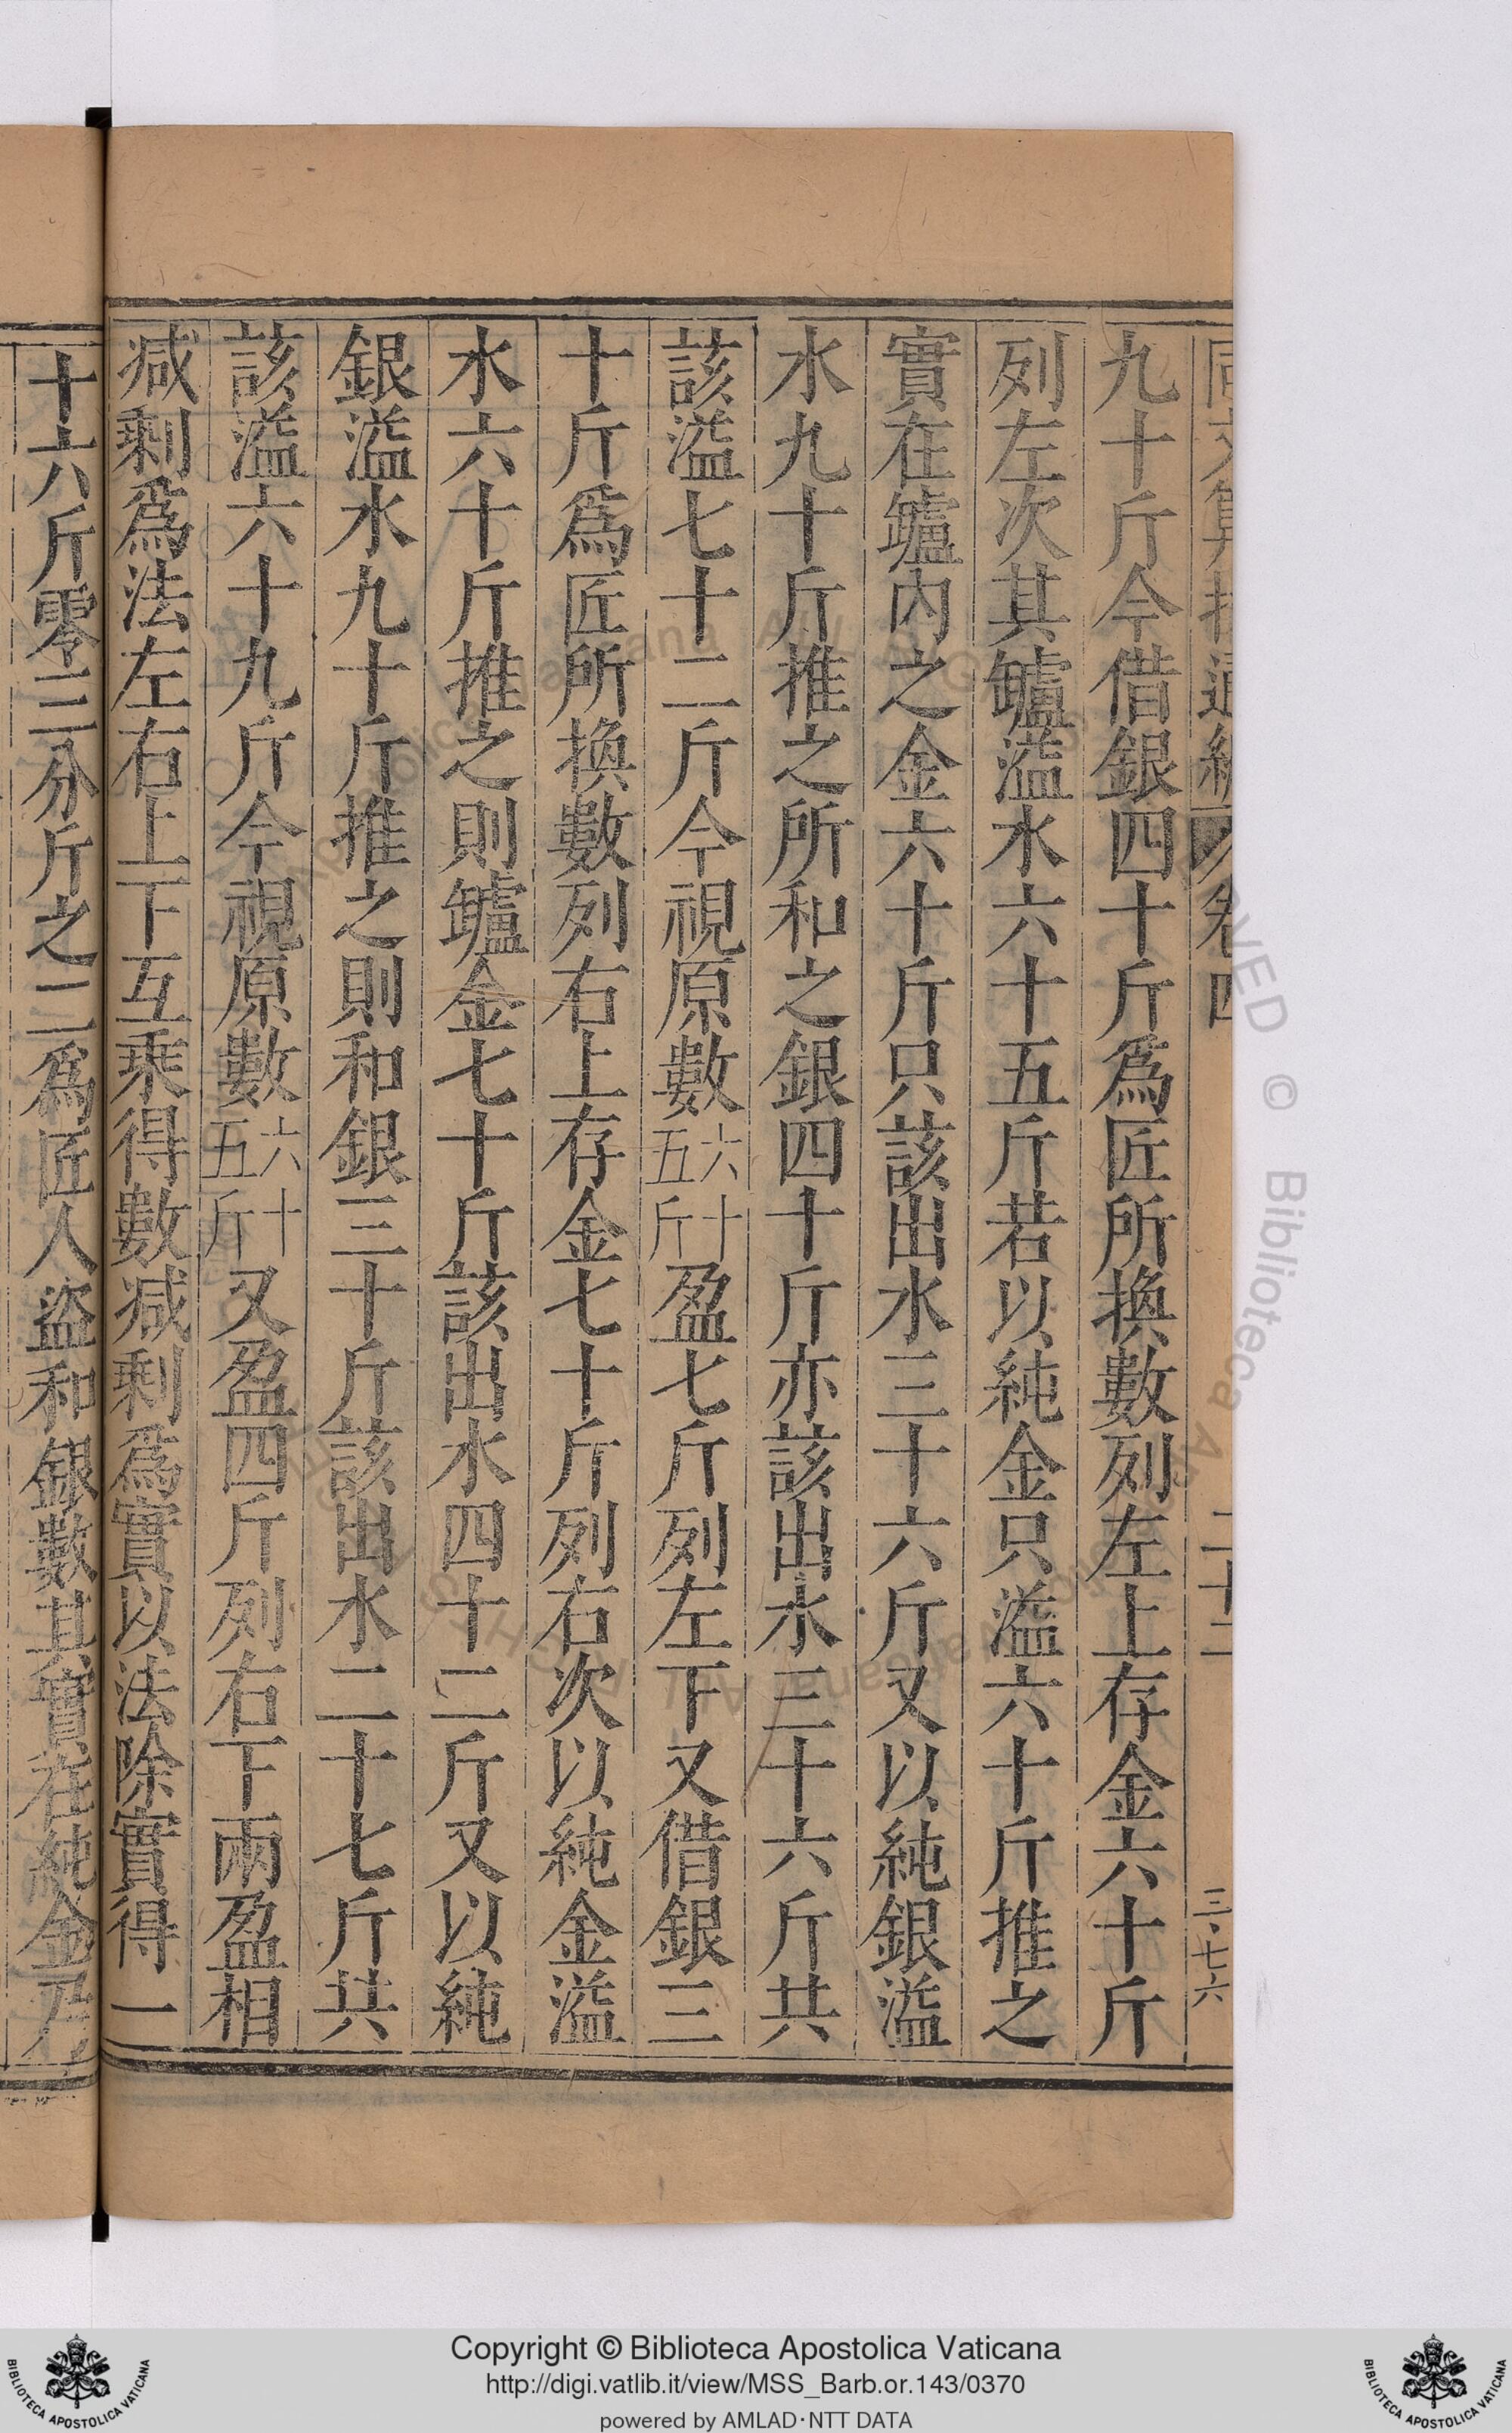 九十斤今借銀四十斤爲匠所換數列左上存金六十斤
列左次其罏溢水六十五斤若以純金只溢六十斤推之
實在罏內之金六十斤只該出水三十六斤又以純銀溢
水九十斤推之所和之銀四十斤亦該出水三十六斤共
該溢七十二斤今視原數六十五斤盈七斤列左下又借銀三
十斤爲匠所換數列右上存金七十斤列右次以純金溢
水六十斤推之則罏金七十斤該出水四十二斤又以純
銀溢水九十斤推之則和銀三十斤該出水二十七斤共
該溢六十九斤今視原數六十五斤又盈四斤列右下兩盈相
減剩爲法左右上下互乘得數減剩爲實以法除實得一
十六斤零三分斤之二爲匠人盜和銀數其實在純金乃
卷四
二十二
三·七六
Copyright © Biblioteca Apostolica Vaticana
http://digi.vatlib.it/view/MSS_Barb.or.143/0370
powered by AMLAD·NTT DATA
BIBLIOTECA APOSTOLICA VATICANA
BIBLIOTECA APOSTOLICA VATICANA